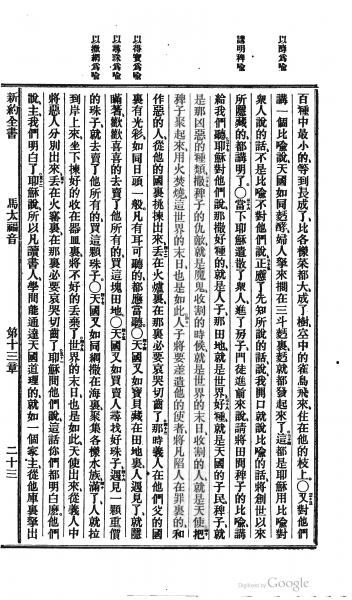 以酵爲喻
講明稗喻
以得寶爲喻
以尋珠爲喻
以撒網爲喻
百種中最小的等到長成了比各樣菜都大成了樹空中的雀鳥飛來住在他的枝上○又對他們
講一個比喻說天國如同麪酵婦人拏來擱在三斗麪裏麪就都發起來了這都是耶穌用比喻對
衆人說的話不是比喻不對他們說正應了先知所說的話說我開口就說比喻的話將創世以來
所隱藏的都講明了○當下耶穌遣散了衆人進了房子門徒進前來說請將田間稗子的比喻講
給我們聽耶穌對他們說那撒好種的就是人子那田地就是世界好種就是天國的子民稗子就
是那凶惡的種類撒稗子的仇敵就是魔鬼收割的時候就是世界的末日收割的人就是天使把
稗子聚起來用火焚燒這世界的末日也是如此人子將要差遣他的使者將凡陷人在罪裏的和
作惡的人從他的國裏挑揀出來丟在火爐裏在那裏必要哀哭切齒了那時義人在他們父的國
裏有光彩如同日頭一般凡有耳可聽的都應當聽○天國又如寶貝藏在田地裏人遇見了就隱
瞞著歡歡喜喜的去賣了他所有的買這塊田地○天國又如買賣人尋找好珠子遇見一顆重價
的珠子就去賣了他所有的買這顆珠子○天國又如同網撒在海裏聚集各樣水族滿了人就拉
到岸上來坐下揀好的收在器皿裏將不好的丟棄了世界的末日也是如此天使出來從義人中
將惡人分別出來丟在火窰裏在那裏必要哀哭切齒了耶穌問他們說這話你們都明白麽他們
說主我們明白了耶穌說所以凡讀書人學問能通達天國道理的就如一個家主從他庫裏拏出
新約全書 馬太福音 第十三章 二十三
Digitized by Google